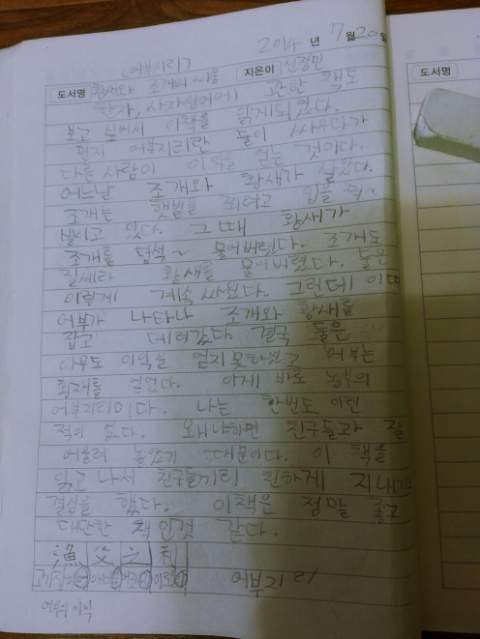 2014 년 7월 20일
<어부지리>
도서명 황새와 조개의 싸움 지은이 신정민
한자, 사자성어에 관한 책도
보고 싶어서 이 책을 읽게되었다.
어부지리란 둘이 싸우다가
다른 사람이 이익을 얻는 것이다.
어느날 조개와 황새가 살았다.
조개는 햇볕을 쬐려고 입을
벌리고 있다. 그 때 황새가
조개를 덥석~ 물어버렸다. 조개도
질세라 황새를 물어버렸다. 둘은
이렇게 계속 싸웠다. 그런데 이때
어부가 나타나 조개와 황새를
잡고 데려갔다. 결국 둘은
아무도 이익을 얻지못하였고 어부는
횡재를 얻었다. 이게 바로
어부지리이다. 나는 한번도 이런
적이 없다. 왜냐하면 친구들과 잘
어울려 놀았기 때문이다. 이 책을
읽고 나서 친구들끼리 친하게 지내기로
결심을 했다. 이책은 정말 좋고
대단한 책인것 같다.
漁 父 之 利
어부지리
어부의 이익
도서명